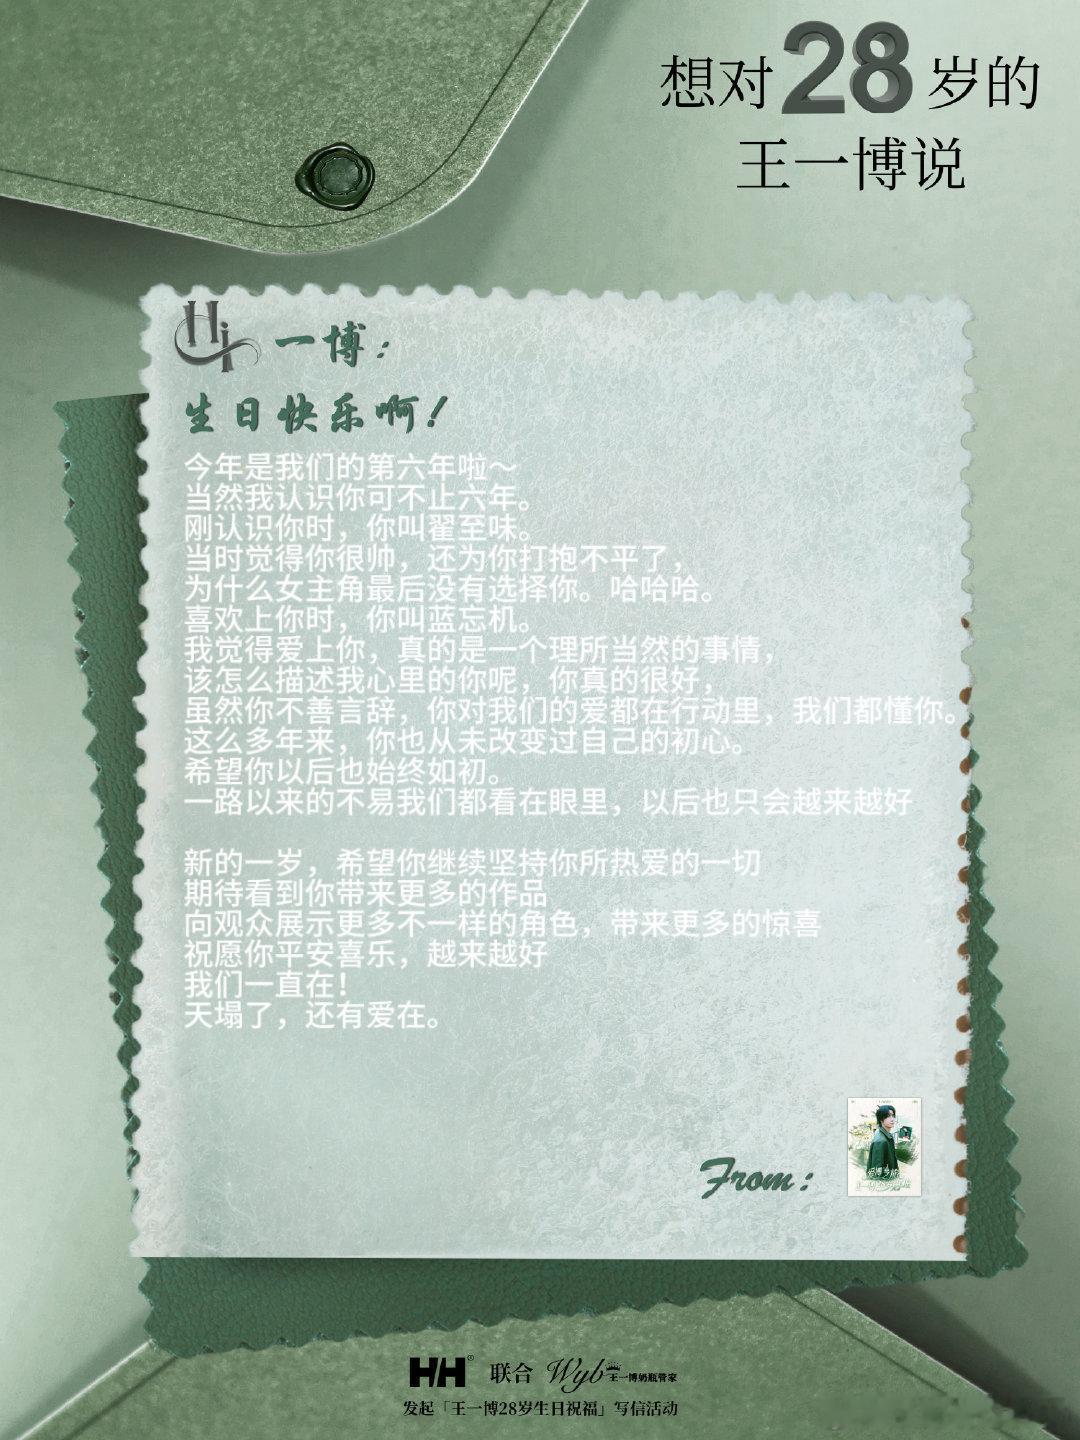 想对28岁的
王一博说
Hi 一博：
生日快乐啊！
今年是我们的第六年啦～
当然我认识你可不止六年。
刚认识你时，你叫翟至味。
当时觉得你很帅，还为你打抱不平了，
为什么女主角最后没有选择你。哈哈哈。
喜欢上你时，你叫蓝忘机。
我觉得爱上你，真的是一个理所当然的事情，
该怎么描述我心里的你呢，你真的很好，
虽然你不善言辞，你对我们的爱都在行动里，我们都懂你。
这么多年来，你也从未改变过自己的初心。
希望你以后也始终如初。
一路以来的不易我们都看在眼里，以后也只会越来越好
新的一岁，希望你继续坚持你所热爱的一切
期待看到你带来更多的作品
向观众展示更多不一样的角色，带来更多的惊喜
祝愿你平安喜乐，越来越好
我们一直在！
天塌了，还有爱在。
From：
HH® 联合 Wyb王一博奶瓶管家
发起「王一博28岁生日祝福」写信活动